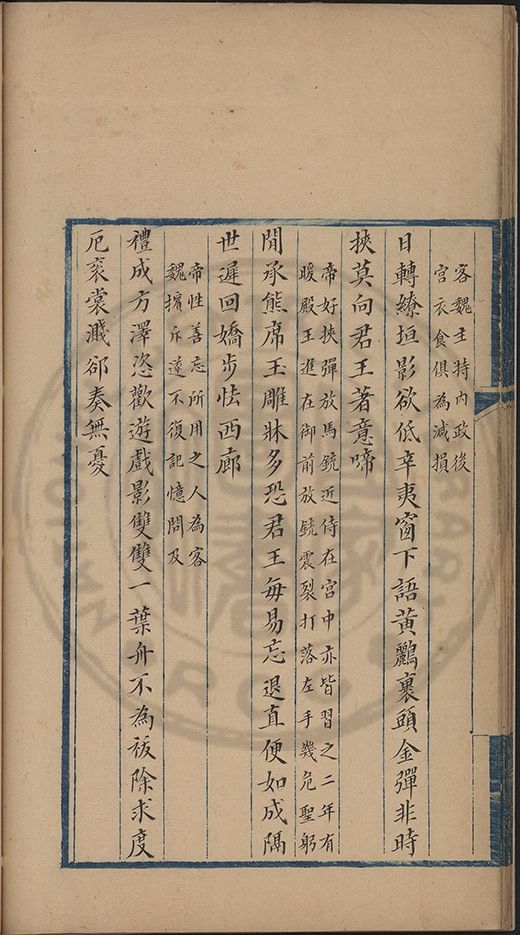 客魏主持內政後
宮衣食俱為減損
日轉繚垣影欲低辛夷窗下語黃鸝裹頭金彈非時
挾莫向君王著意啼
帝好挾彈放馬銃近侍在宮中亦皆習之二年有
暖殿王進在御前放銃震裂打落左手幾危聖躬
閒承熊席玉雕牀多恐君王每易忘退直便如成隔
世遲回嬌步怯西廊
帝性善忘所用之人為客
魏擯斥遂不復記憶問及
禮成方澤恣歡遊戲影雙雙一葉舟不為祓除求度
厄袞裳濺郤奏無憂